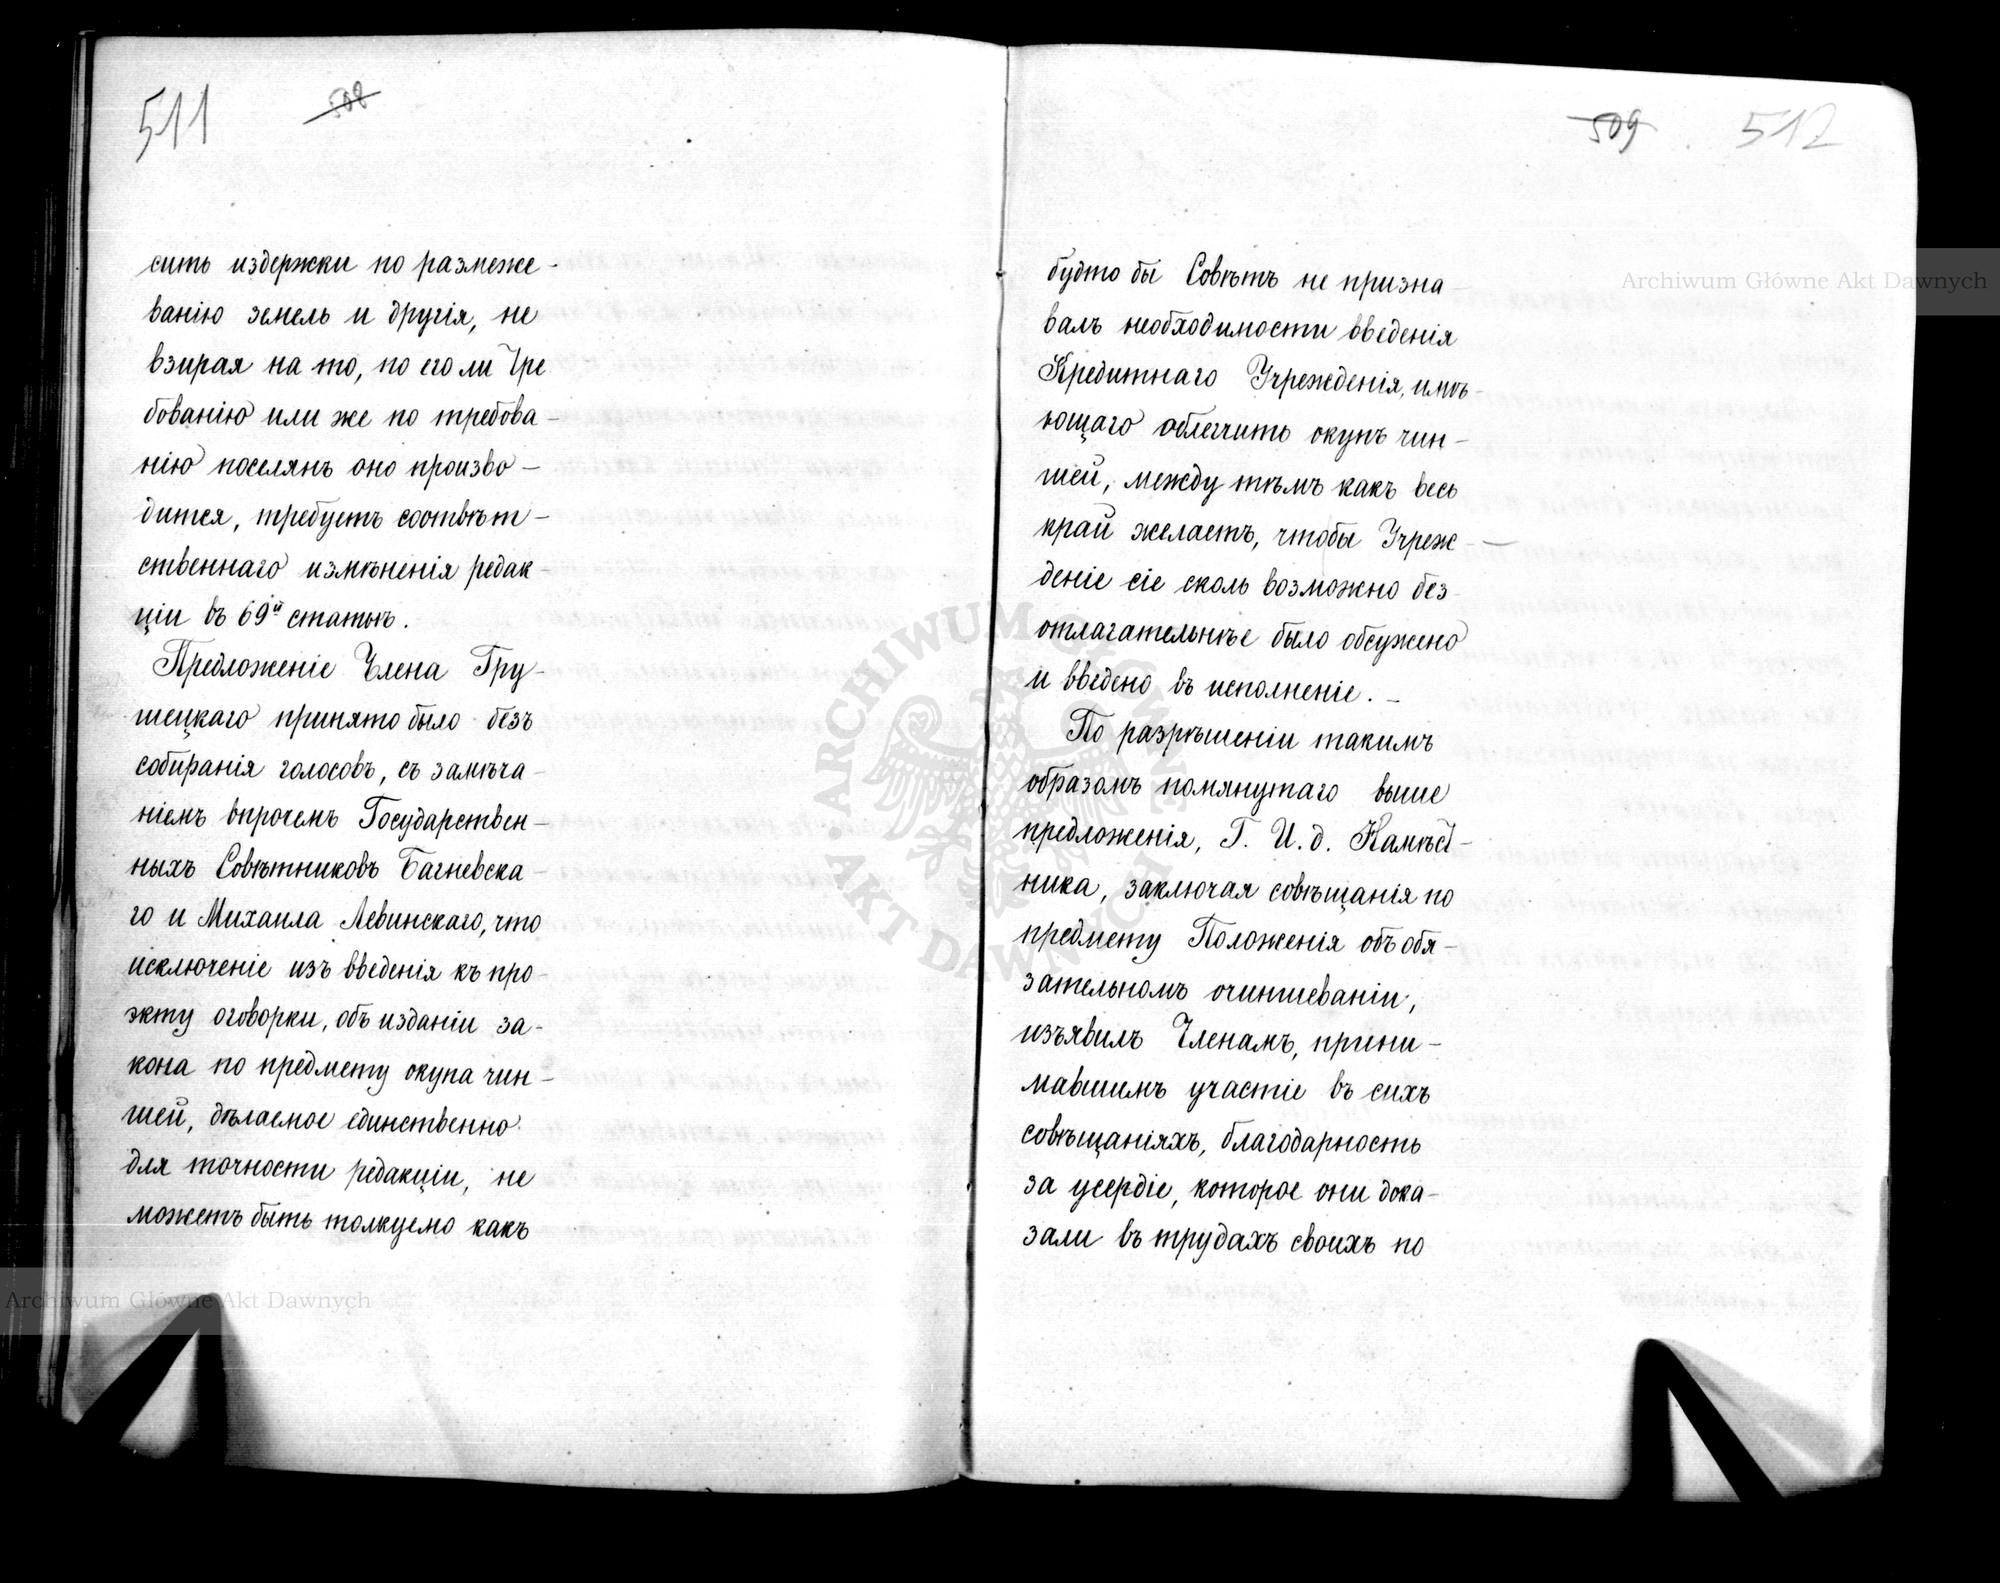 511 508
сить издержки по размеже-
ванію земель и другія, не
взирая на то, по его ли тре
бованію или же по требова-
нію поселянъ оно произво-
дится, требуетъ соотвѣт-
ственнаго измѣненія редак-
ціи въ 69й статьѣ.
Предложеніе Члена Гру-
шецкаго принято было безъ
собиранія голосовъ, съ замѣча-
ніемъ впрочемъ Государствен-
ныхъ Совѣтниковъ Багневска-
го и Михаила Левинскаго, что
исключеніе изъ введенія къ про-
экту оговорки, объ изданіи за-
кона по предмету окупа чин-
шей, дѣлаемое единственно
для точности редакціи, не
можетъ быть толкуемо какъ
509 512
будто бы Совѣтъ не призна-
валъ необходимости введенія
Кредитнаго Учрежденія, имѣ-
ющаго облегчить окупъ чин-
шей, между тѣмъ какъ весь
край желаетъ, чтобы Учреж-
деніе сіе сколь возможно без-
отлагательнѣе было обсужено
и введено въ исполненіе. -
По разрѣшеніи такимъ
образомъ помянутаго выше
предложенія, Г. И. д. Намѣст-
ника, заключая совѣщанія по
предмету Положенія объ обя-
зательномъ очиншеваніи,
изъявилъ Членамъ, прини-
мавшимъ участіе въ сихъ
совѣщаніяхъ, благодарность
за усердіе, которое они дока-
зали въ трудахъ своихъ по
Archiwum Główne Akt Dawnych
Archiwum Główne Akt Dawnych
ARCHIWUM GŁÓWNE AKT DAWNYCH